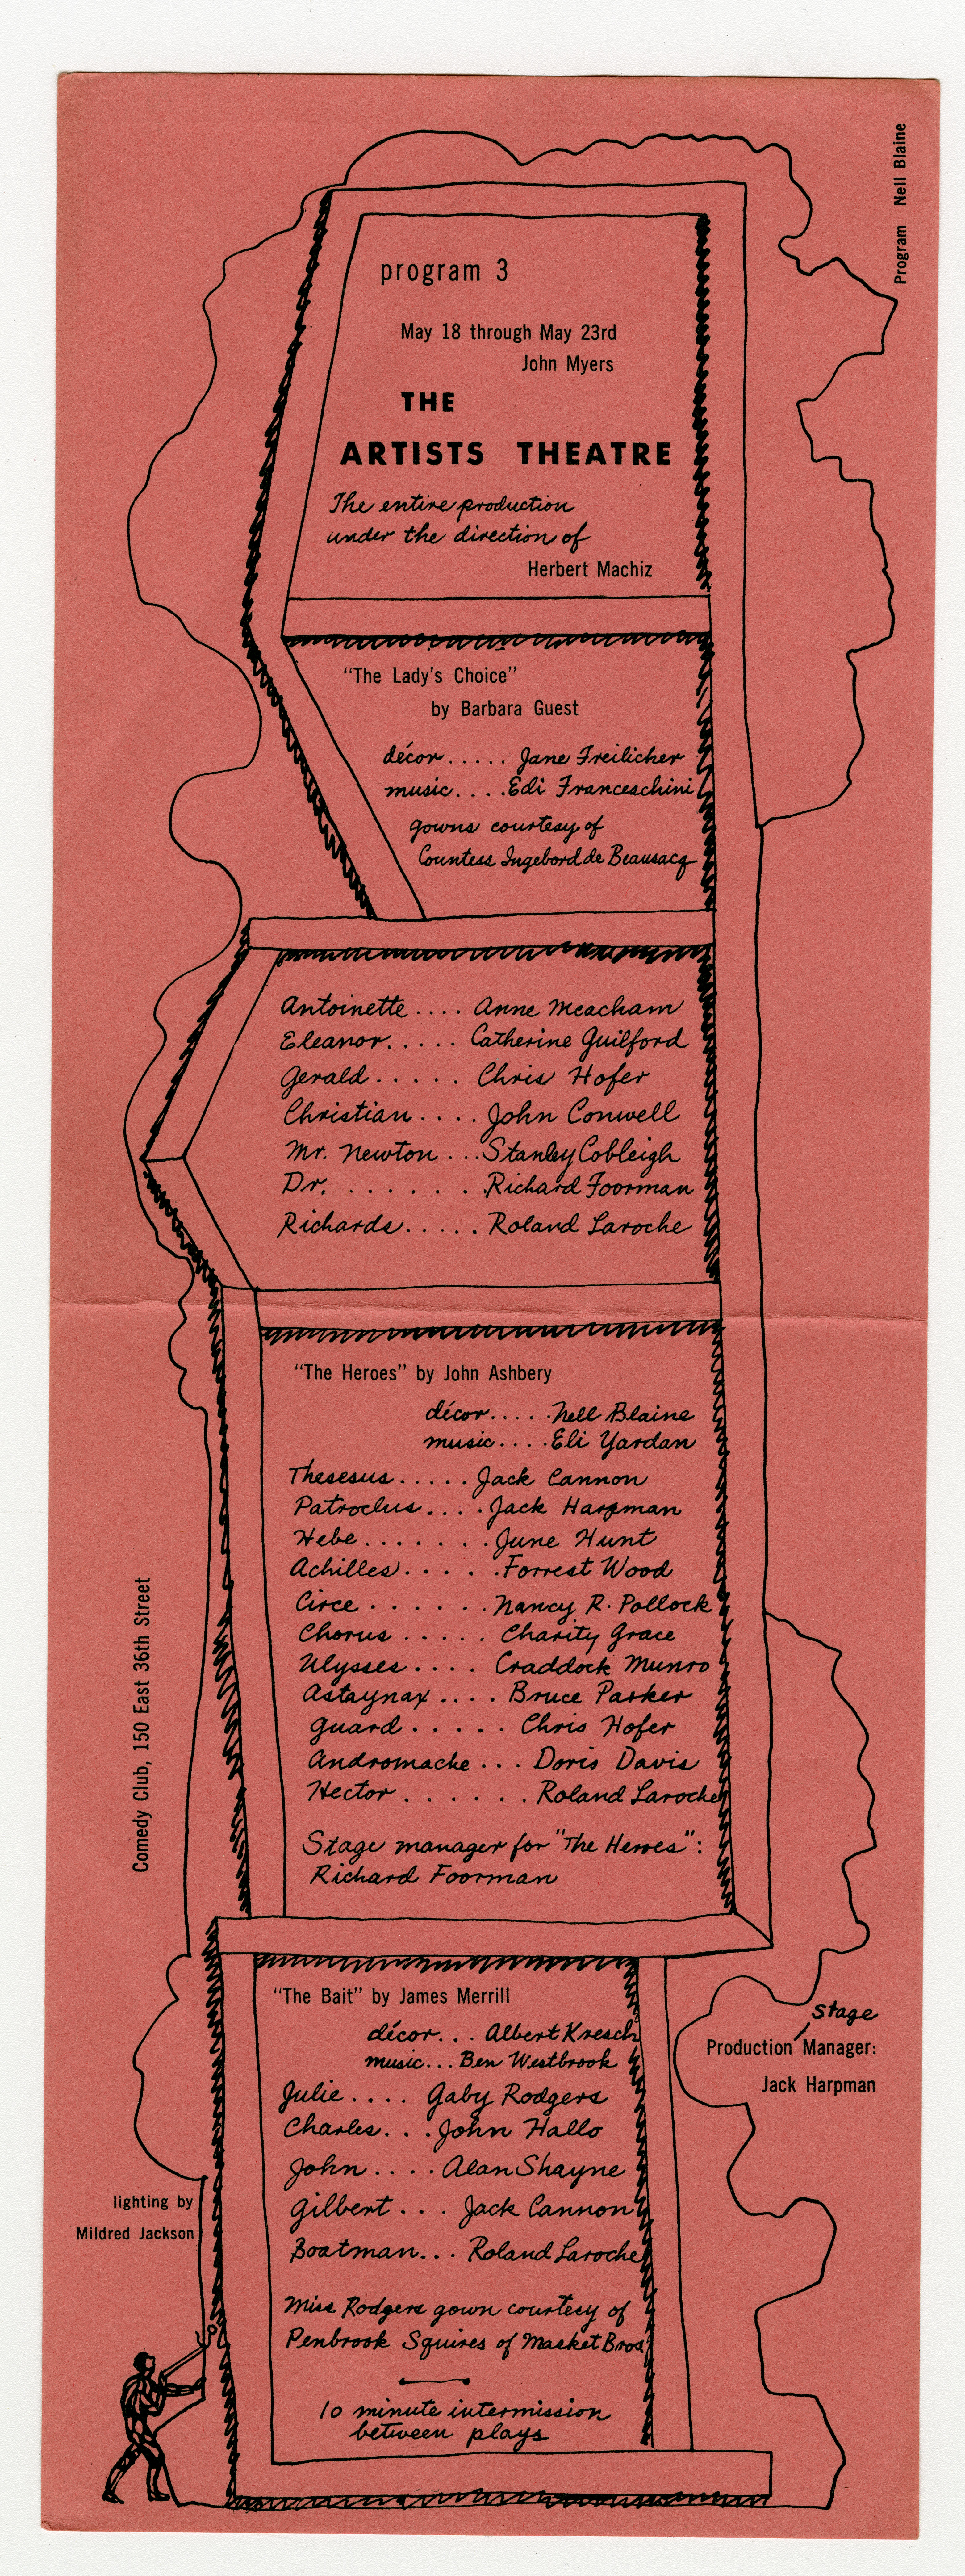 Program Nell Blaine
program 3
May 18 through May 23rd
John Myers
THE
ARTISTS THEATRE
The entire production
under the direction of
Herbert Machiz
"The Lady's Choice"
by Barbara Guest
décor..... Jane Freilicher
music....Edi Franceschini
gowns courtesy of
Countess Ingebord de Beausacq
Antoinette.... Anne Meacham
Eleanor..... Catherine Guilford
Gerald..... Chris Hofer
Christian.... John Conwell
Mr. Newton...Stanley Cobleigh
Dr. ...... Richard Foorman
Richards..... Roland Laroche
"The Heroes" by John Ashbery
décor.....Nell Blaine
music....Eli Yardan
Thesesus.....Jack Cannon
Patroclus....Jack Harpman
Hebe.......June Hunt
Achilles.....Forrest Wood
Circe......Nancy R. Pollock
Chorus..... Charity Grace
Ulysses.... Craddock Munro
Astaynax.... Bruce Parker
Guard..... Chris Hofer
Andromache... Doris Davis
Hector...... Roland Laroche
Stage manager for "The Heroes":
Richard Foorman
Comedy Club, 150 East 36th Street
"The Bait" by James Merrill
décor... Albert Kresch
music...Ben Westbrook
Julie.... Gaby Rodgers
Charles...John Hallo
John....Alan Shayne
Gilbert... Jack Cannon
Boatman... Roland Laroche
Miss Rodgers gown courtesy of
Penbrook Squires of Masket Bros
10 minute intermission
between plays
Stage
Production Manager:
Jack Harpman
lighting by
Mildred Jackson